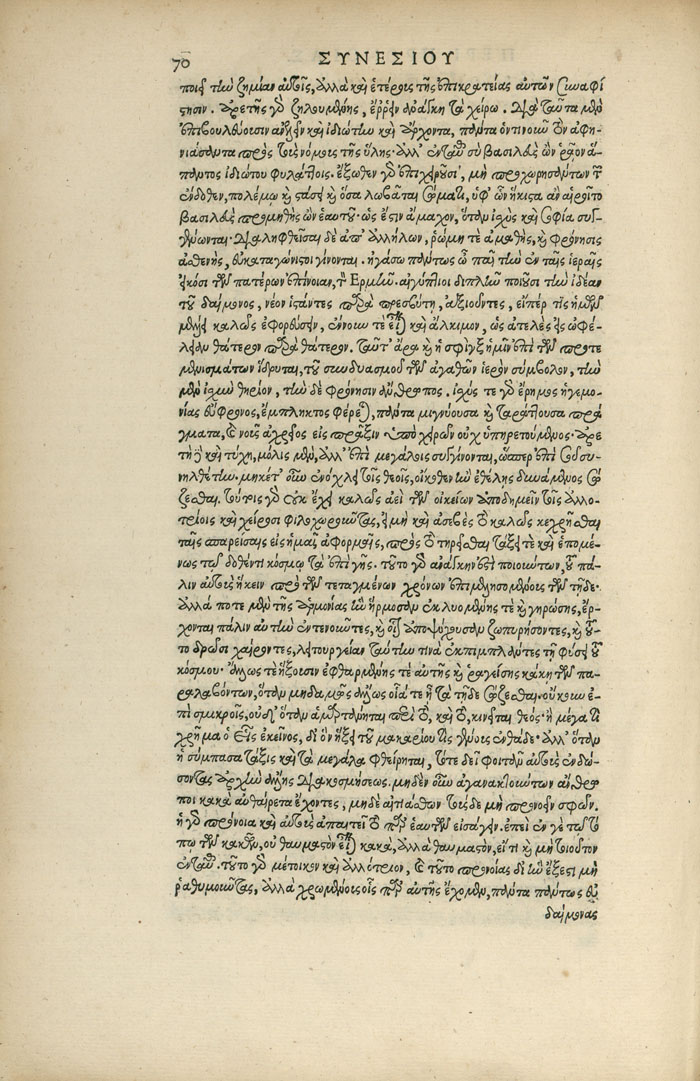 70 ΣΥΝΕΣΙΟΥ
ποιεῖ τὴν ζημίαν αὐτοῖς, ἀλλὰ καὶ ἑτέροις τῆς ἐπικρατείας αὐτῶν συναφί
στησιν. ἀρετῆς γὰρ ζηλουμένης, ἔρρειν ἀνάγκη τὰ χείρω. διὰ ταῦτα μὲν
ἐπιβουλεύουσιν καὶ ἰδιώτην καὶ ἄρχοντα, πάντα ὁντινοῦν ἀφη-
νιάσαντα πρὸς τοὺς νόμους τῆς ὕλης. ἀλλ' ἐνταῦθα σὺ βασιλεὺς ὢν ῥᾷον ἅ-
παντος ἰδιώτου φυλάττοις. ἔξωθεν γὰρ ἐπιχειροῦσι, μὴ προχωρησάντων τῶν
ἔνδοθεν, πολέμῳ καὶ στάσει καὶ ὅσα λωβᾶται σώματι, ὑφ' ὧν ἥκιστα ἂν αἱροῖτο
βασιλεὺς προμηθὴς ὢν ἑαυτοῦ. ὡς ἔστιν ἄμαχον, ὅταν ἰσχὺς καὶ σοφία συγ-
γένωνται. διαληφθεῖσαι δὲ ἀπ' ἀλλήλων, ῥώμη τε ἀμαθὴς, καὶ φρόνησις
ἀσθενὴς, εὐκαταγώνιστοι γίνονται. ἠγάσω πάντως ὦ παῖ τὴν ἐν ταῖς ἱεραῖς
εἰκόσι τῶν πατέρων ἐπίνοιαν, τὸν Ἑρμῆν. αἰγύπτιοι διπλῆν ποιοῦσι τὴν ἰδέαν
τοῦ δαίμονος, νέον ἱστάντες παρὰ πρεσβύτῃ, ἀξιοῦντες, εἴπερ τις ἡμῶν
μέλλει καλῶς ἐφορεύσειν, ἔννουν τε εἶναι καὶ ἄλκιμον, ὡς ἀτελὲς εἰς ὠφέ-
λειαν θάτερον παρὰ θάτερον. ταῦτ' ἄρα καὶ ἡ σφὶγξ ἡμῖν ἐπὶ τῶν προτε
μενισμάτων ἵδρυται, τοῦ συνδυασμοῦ τῶν ἀγαθῶν ἱερὸν σύμβολον, τὴν
μὲν ἰσχὺν θηρίον, τὴν δὲ φρόνησιν ἄνθρωπος. ἰσχύς τε γὰρ ἔρημος ἡγεμο-
νίας εὔφρονος, ἔμπληκτος φέρεται, πάντα μιγνύουσα καὶ ταράττουσα πρά
γματα, καὶ νοῦς ἀχρεῖος εἰς πρᾶξιν ὑπὸ χειρῶν οὐχ ὑπηρετούμενος. ἀρε
τὴ δὲ καὶ τύχη, μόλις μὲν, ἀλλ' ἐπὶ μεγάλοις συγγίνονται, ὥσπερ ἐπὶ σοῦ συ-
νηλθέτην. μηκέτ' οὖν ἐνόχλει τοῖς θεοῖς, οἴκοθεν ἢν ἐθέλῃς δυνάμενος σώ
ζεσθαι. τούτοις γὰρ οὐκ ἔχει καλῶς ἀεὶ τῶν οἰκείων ἀποδημεῖν τοῖς ἀλλο-
τρίοις καὶ χείροσι φιλοχωροῦντας, εἰ μὴ καὶ ἀσεβὲς τὸ καλῶς κεχρῆσθαι
ταῖς σπαρείσαις εἰς ἡμᾶς ἀφορμαῖς, πρὸς τὸ τηρεῖσθαι τάξει τε καὶ ἑπομέ-
νως τῷ δοθέντι κόσμῳ τὰ ἐπὶ γῆς. τοῦτο γὰρ ἀνάγκην ἐστὶ ποιούντων, τοῦ πά-
λιν αὐτοὺς ἥκειν πρὸ τῶν τεταγμένων χρόνων ἐπιμελησομένους τῶν τῇδε.
ἀλλά ποτε μὲν τῆς ἁρμονίας ἣν ἥρμοσαν ἐκλυομένης τε καὶ γηρώσης, ἔρ-
χονται πάλιν αὐτὴν ἐντενοῦντες, καὶ οἷον ἀποψύχουσαν ζωπυρήσοντες, καὶ τοῦ-
το δρῶσι χαίροντες, λειτουργίαν ταύτην τινὰ ἐκπιμπλάντες τῇ φύσει τοῦ
κόσμου. ἄλλως τε ἥξουσιν ἐφθαρμένης τε αὐτῆς καὶ ῥαγείσης κάκῃ τῶν πα-
ραλαβόντων, ὅταν μηδαμῶς ἄλλως οἷά τε ᾖ τὰ τῇδε σώζεσθαι. οὔκουν ἐ-
πὶ σμικροῖς, οὐδ' ὅταν ἁμαρτάνηται περὶ τὸ, καὶ τὸ, κινεῖται θεός. ἦ μέγα τι
χρῆμα ὁ εἷς ἐκεῖνος, δι' ὃν ἥξει τοῦ μακαρίου τις γένους ἐνθάδε. ἀλλ' ὅταν
ἡ σύμπασα τάξις καὶ τὰ μεγάλα φθείρηται, τότε δεῖ φοιτᾶν αὐτοὺς ἐνδώ-
σοντας ἀρχὴν ἄλλης διακοσμήσεως. μηδὲν οὖν ἀγανακτούντων ἄνθρω
ποι κακὰ αὐθαίρετα ἔχοντες, μηδὲ αἰτιάσθων τοὺς δὲ μὴ προνοεῖν σφῶν.
ἡ γὰρ πρόνοια καὶ αὐτοὺς ἀπαιτεῖ τὸ παρ' ἑαυτῶν εἰσάγειν. ἐπεὶ ἔν γε τῷ τό
πῳ τῶν κακῶν, οὐ θαυμαστὸν εἶναι κακὰ, ἀλλὰ θαυμαστὸν, εἴ τι καὶ μὴ τοιοῦτον
ἐνταῦθα. τοῦτο γὰρ μέτοικον καὶ ἀλλότριον, καὶ τοῦτο προνοίας δι' ἣν ἔξεστι μὴ
ῥαθυμοῦντας, ἀλλὰ χρωμένους οἷς παρ' αὐτῆς ἔχομεν, πάντα πάντως εὐ
δαίμονας